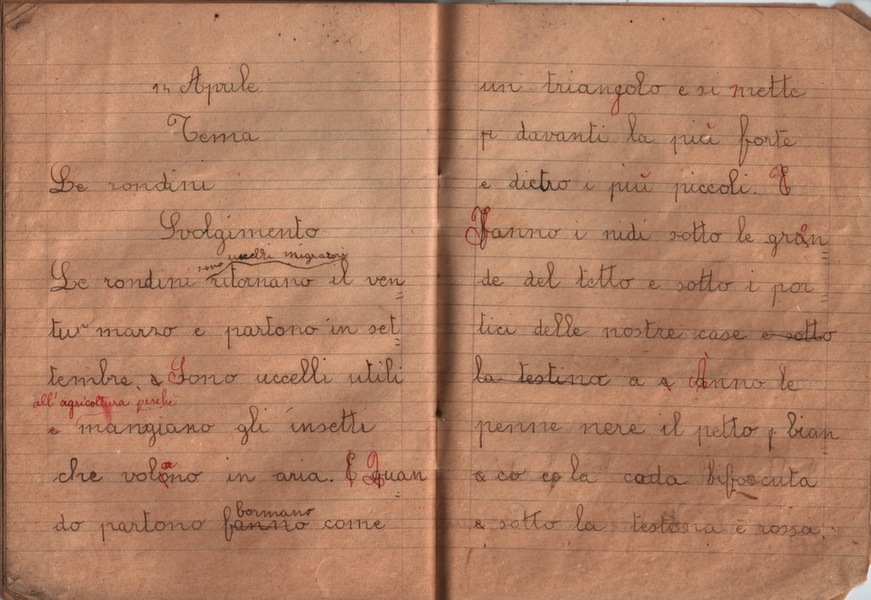 Aprile
Tema
Le rondini
Svolgimento
sono uccelli migratori
Le rondini ritornano il ven
tun marzo e partono in set
tembre. Sono uccelli utili
all'agricoltura perché
e mangiano gli insetti
che volano in aria. E Quan
do partono fanno
formano
come
un triangolo e si mette
davanti la più forte
e dietro i più piccoli. E
Fanno i nidi sotto le gran
de del tetto e sotto i por
tici delle nostre case e sotto
la testina a Ànno le
penne nere il petto bian
co la coda biforcuta
e sotto la è rossa.